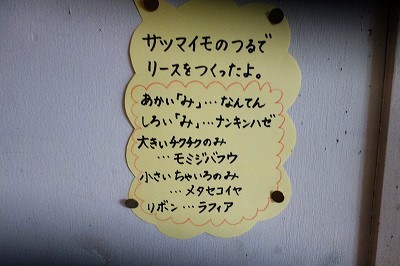 サツマイモのつるで
リースをつくったよ。
あかい「み」…なんてん
しろい「み」…ナンキンハゼ
大きいチクチクのみ
…モミジバフウ
小さいちゃいろのみ
…メタセコイヤ
リボン…ラフィア